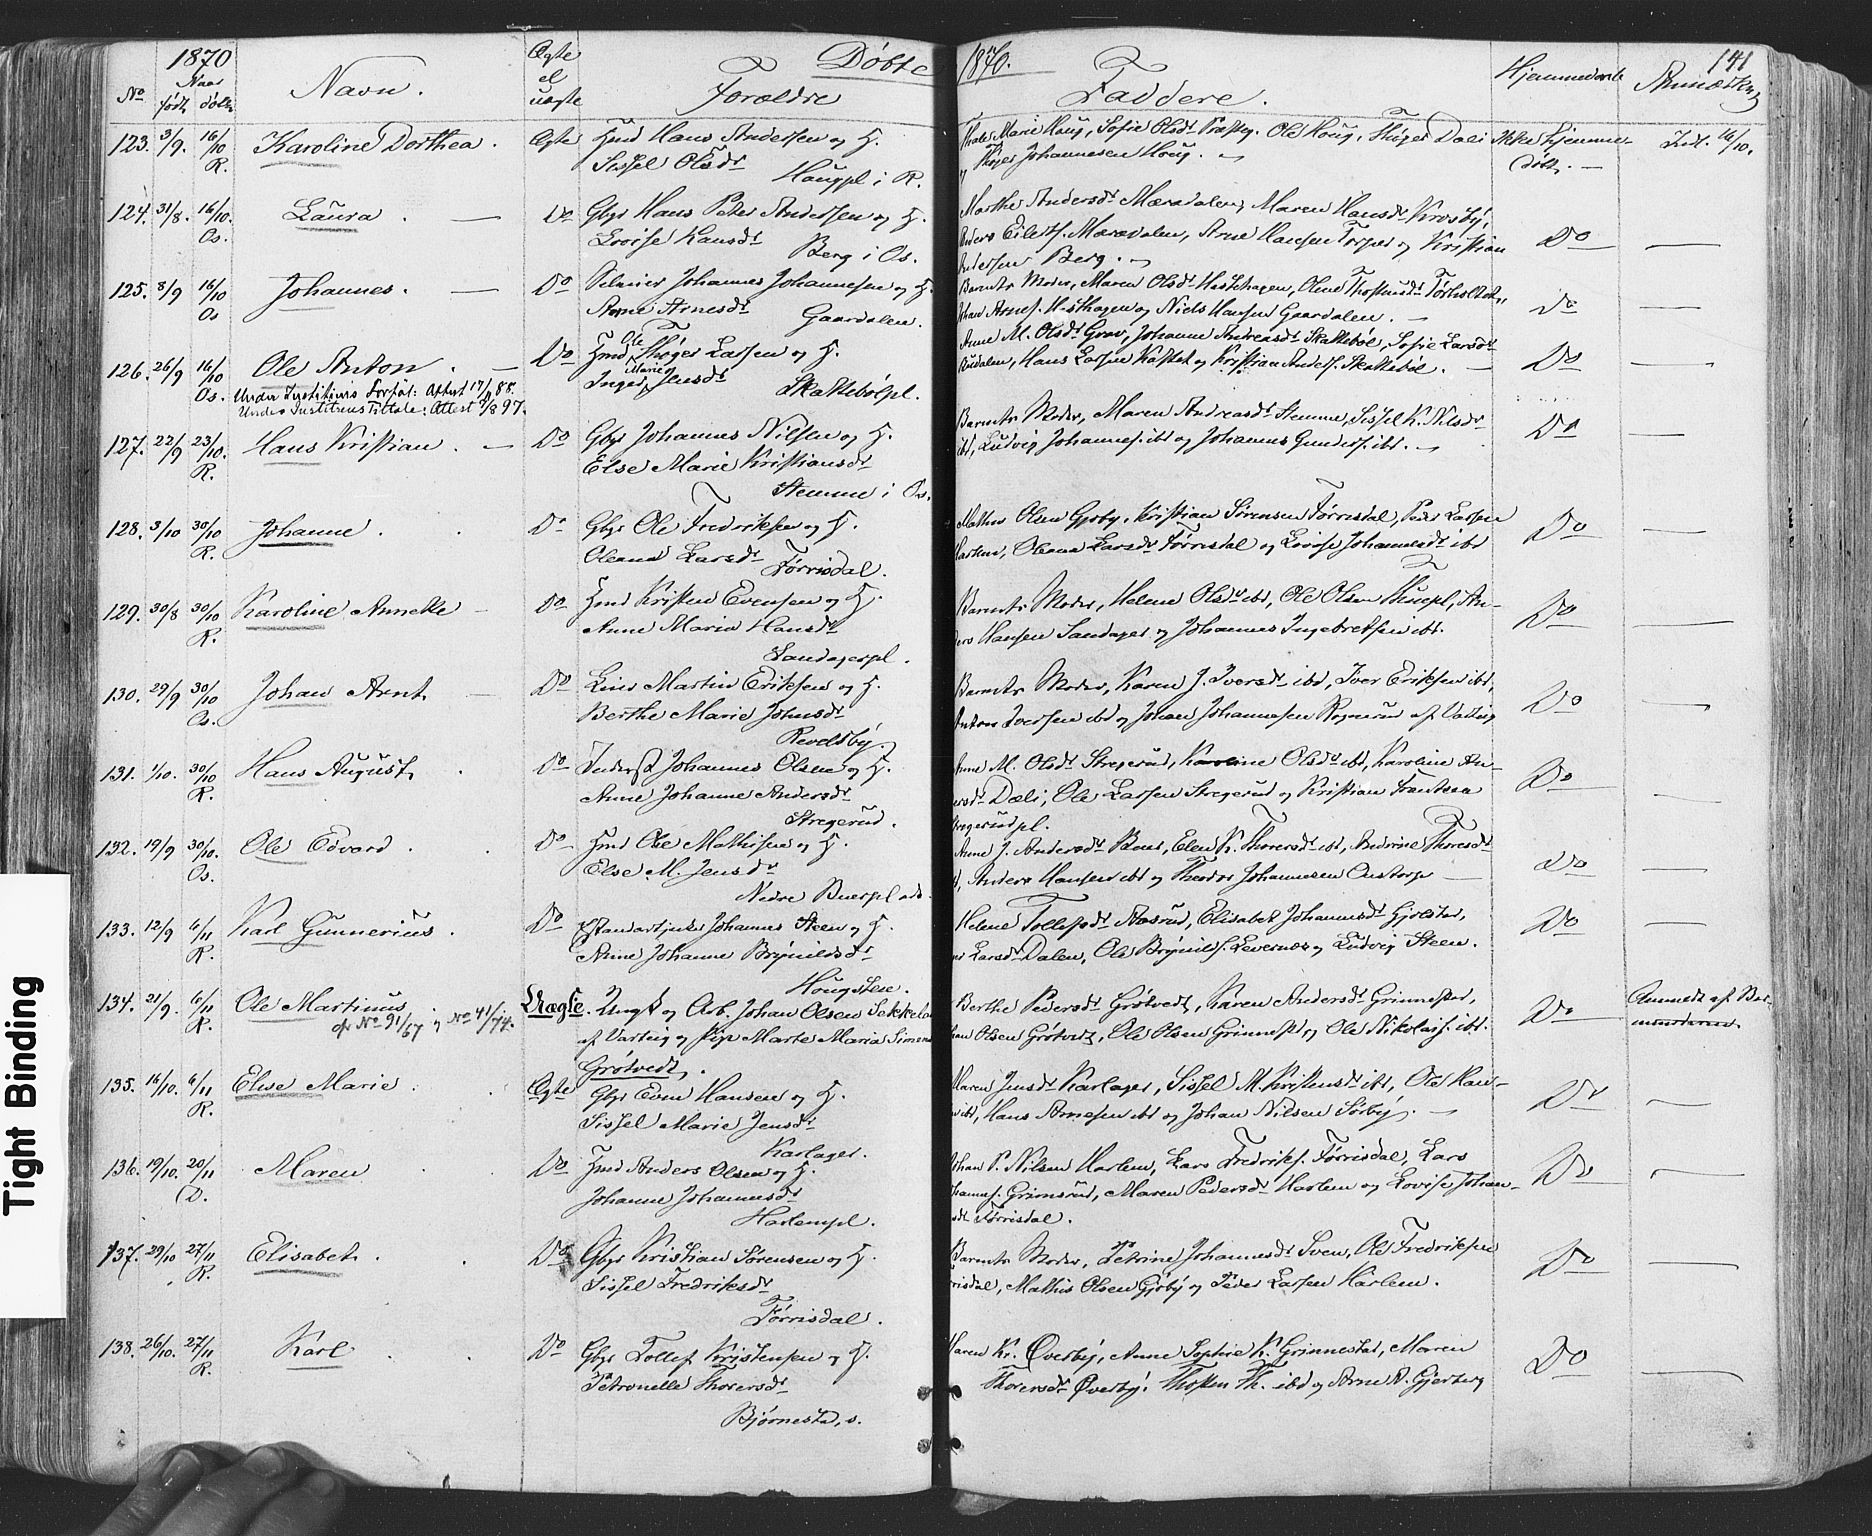 1870
Døbte
1870.
141
No
Naar
født
døbt
Navn.
Ægte
el
uægte
Forældre
Faddere.
Hjemmedøbte
Anmærkn.
123. 3/9. 16/10 R. Karoline Dorthea. Ægte Hmd Hans Andersen og H.
Sissel Olsdr
Hougpl i R.
Marie Houg, Sofie Olsdr Præsteg. Ole Houg, Thøger Dæli
Thøger Johannesen Houg.
Ikke hjemme-
døbt.
Indt. 16/10.
124. 31/8. 16/10. Os. Laura. Do Gbr Hans Peter Andersen og H.
Lovise Hansdr
Berg i Os.
Marthe Andersdr Mæradalen, Maren Hansdr Krosby,
Anders Eilertsf. Mæradalen, Arne Hansen Torper og Kristian
Andersen Berg.
Do
125. 8/9 16/10 Os Johannes. Do Selveier Johannes Johannesen og H.
Anne Arnesdr
Gaardalen.
Barnets Moder, Maren Olsdr Hestehagen, Olene
Johan Arnes. Hestehagen og Niels Hansen Gaardalen.
Do
126. 26/9 16/10 Os. Ole Anton. Do Hmd Ole Thøger Larsen og H.
Inger Marie Jensdr
Skaltebølpl.
Under Institiens Forføt: Attest 17/11 88.
Under Institiens Tittale: Attest 7/8 97.
Anne M. Olsdr Grav, Johanne Andreasdr Skaltebøl, Sofie Larsdr
Hans Larsen Kastet og Kristian Anders. Skaltebøl.
Do
127. 22/9 23/10. R. Hans Kristian. Do Gbr Johannes Nilsen og H.
Else Marie Kristiansdr
Stemme i Os.
Barnets Moder, Maren Andreasdr Stemme, Sissel K. Nilsdr
ibd, Ludvig Johannes. ibd og Johannes Gunders. ibd.
Do
128. 3/10 30/10 R. Johanne. Do Gbr Ole Fredriksen og H.
Oleana Larsdr Tørrisdal.
Mathis Olsen Gjøby, Kristian Sørensen Tørrisdal, Peder Larsen
Harlem, Oleana Larsdr Tørrisdal og Lovise Johannesdr ibd
Do
129. 30/8 30/10 R. Karoline Annette Do Hmd Kristen Evensen og H.
Anne Maria Hansdr
Sandagerpl.
Barnets Moder, Helene Olsdr ibd, Ole Olsen Huepl, An-
ders Hansen Sandager og Johannes Ingebretsen ibd.
Do
130. 29/9 30/10 Os. Johan Arnt Do Lieut Martin Eriksen og H.
Berthe Marie Johnsdr
Revelsby.
Barnets Moder, Karen J. Iversdr ibd, Iver Eriksen ibd,
Anton Iversen ibd og Johan Johannesen Rognerud af Varteig
Do
131. 1/10. 30/10 R. Hans August. Do Inderst Johannes Olsen og H.
Anne Johanne Andersdr
Stregerud.
Anne M. Olsdr Stregerud, Karoline Olsdr ibd, Karoline An-
dersdr Dæli, Ole Larsen Stregerud og Kristian Frantsen
Stregerudpl.
Do
132. 19/9 30/10. Os. Ole Edvard. Do Hmd Ole Mathisen og H.
Else M. Jensdr
Nedre Buerpl
Anne J. Andersdr Buer, Elen K. Thoresdr ibd, Andrine Thoresdr
ibd, Anders Hansen ibd og Theodor Johannesen Oustorp
Do
133. 12/9 6/11 R. Karl Gunnerius. Do Standartjunker Johannes Steen og H.
Anne Johanne Brynildsdr
Hougstene.
Helene Tollefsdr Aaserud, Elisabet Johannesdr Gjølstad,
Larsdr Dalen, Ole Brynilds. Levernæs og Ludvig Steen.
Do
134. 21/9. 6/11 R. Ole Martinus. Uægte. Ungk og Arb. Johan Olsen Sekkelu
cfr No 91/67 og No 41/74.
af Varteig og Pige Marte Maria Simens
Grøtvedt.
Berthe Pedersdr Grøtvedt, Karen Andersdr Grinnestad,
Olsen Grøtvedt, Ole Olsen Grinnestad og Ole Nikolais. ibd.
Do
Anmeldt af Bed-
moderen
135. 16/10. 6/11 R. Elise Marie. Ægte Gbr Even Hansen og H.
Sissel Marie Jensdr
Karlager.
Maren Jensdr Karlager, Sissel M. Kristensdr ibd, Ole Han-
sen ibd, Hans Arnesen ibd og Johan Nilsen Sørby.
Do
136. 19/10. 20/11 D. Maren Do Hmd Anders Olsen og H.
Johanne Johannesdr
Harlempl.
Johan P. Nilsen Harlem, Lars Fredriks. Tørrisdal, Lars
Johannes. Grimsrud, Maren Pedersdr Harlem og Lovise Johan-
nesdr Tørrisdal.
Do
137. 29/10 27/11 R. Elisabet. Do Gbr Kristian Sørensen og H.
Sissel Fredriksdr
Tørrisdal.
Barnets Moder, Petrine Johannesdr Sven, Ole Fredriksen
Tørrisdal, Mathis Olsen Gjøby og Peder Larsen Harlem.
Do
138. 26/10. 27/11 R. Karl. Do Gbr Tollef Kristensen og H.
Petronelle Thoresdr
Bjørnestad, s.
Maren Kr. Øverby, Anne Sophie K. Grinnestad, Maren
Thoresdr Øverby, Thosten Th. ibd og Arne A. Gjerberg
Do
Tight Binding